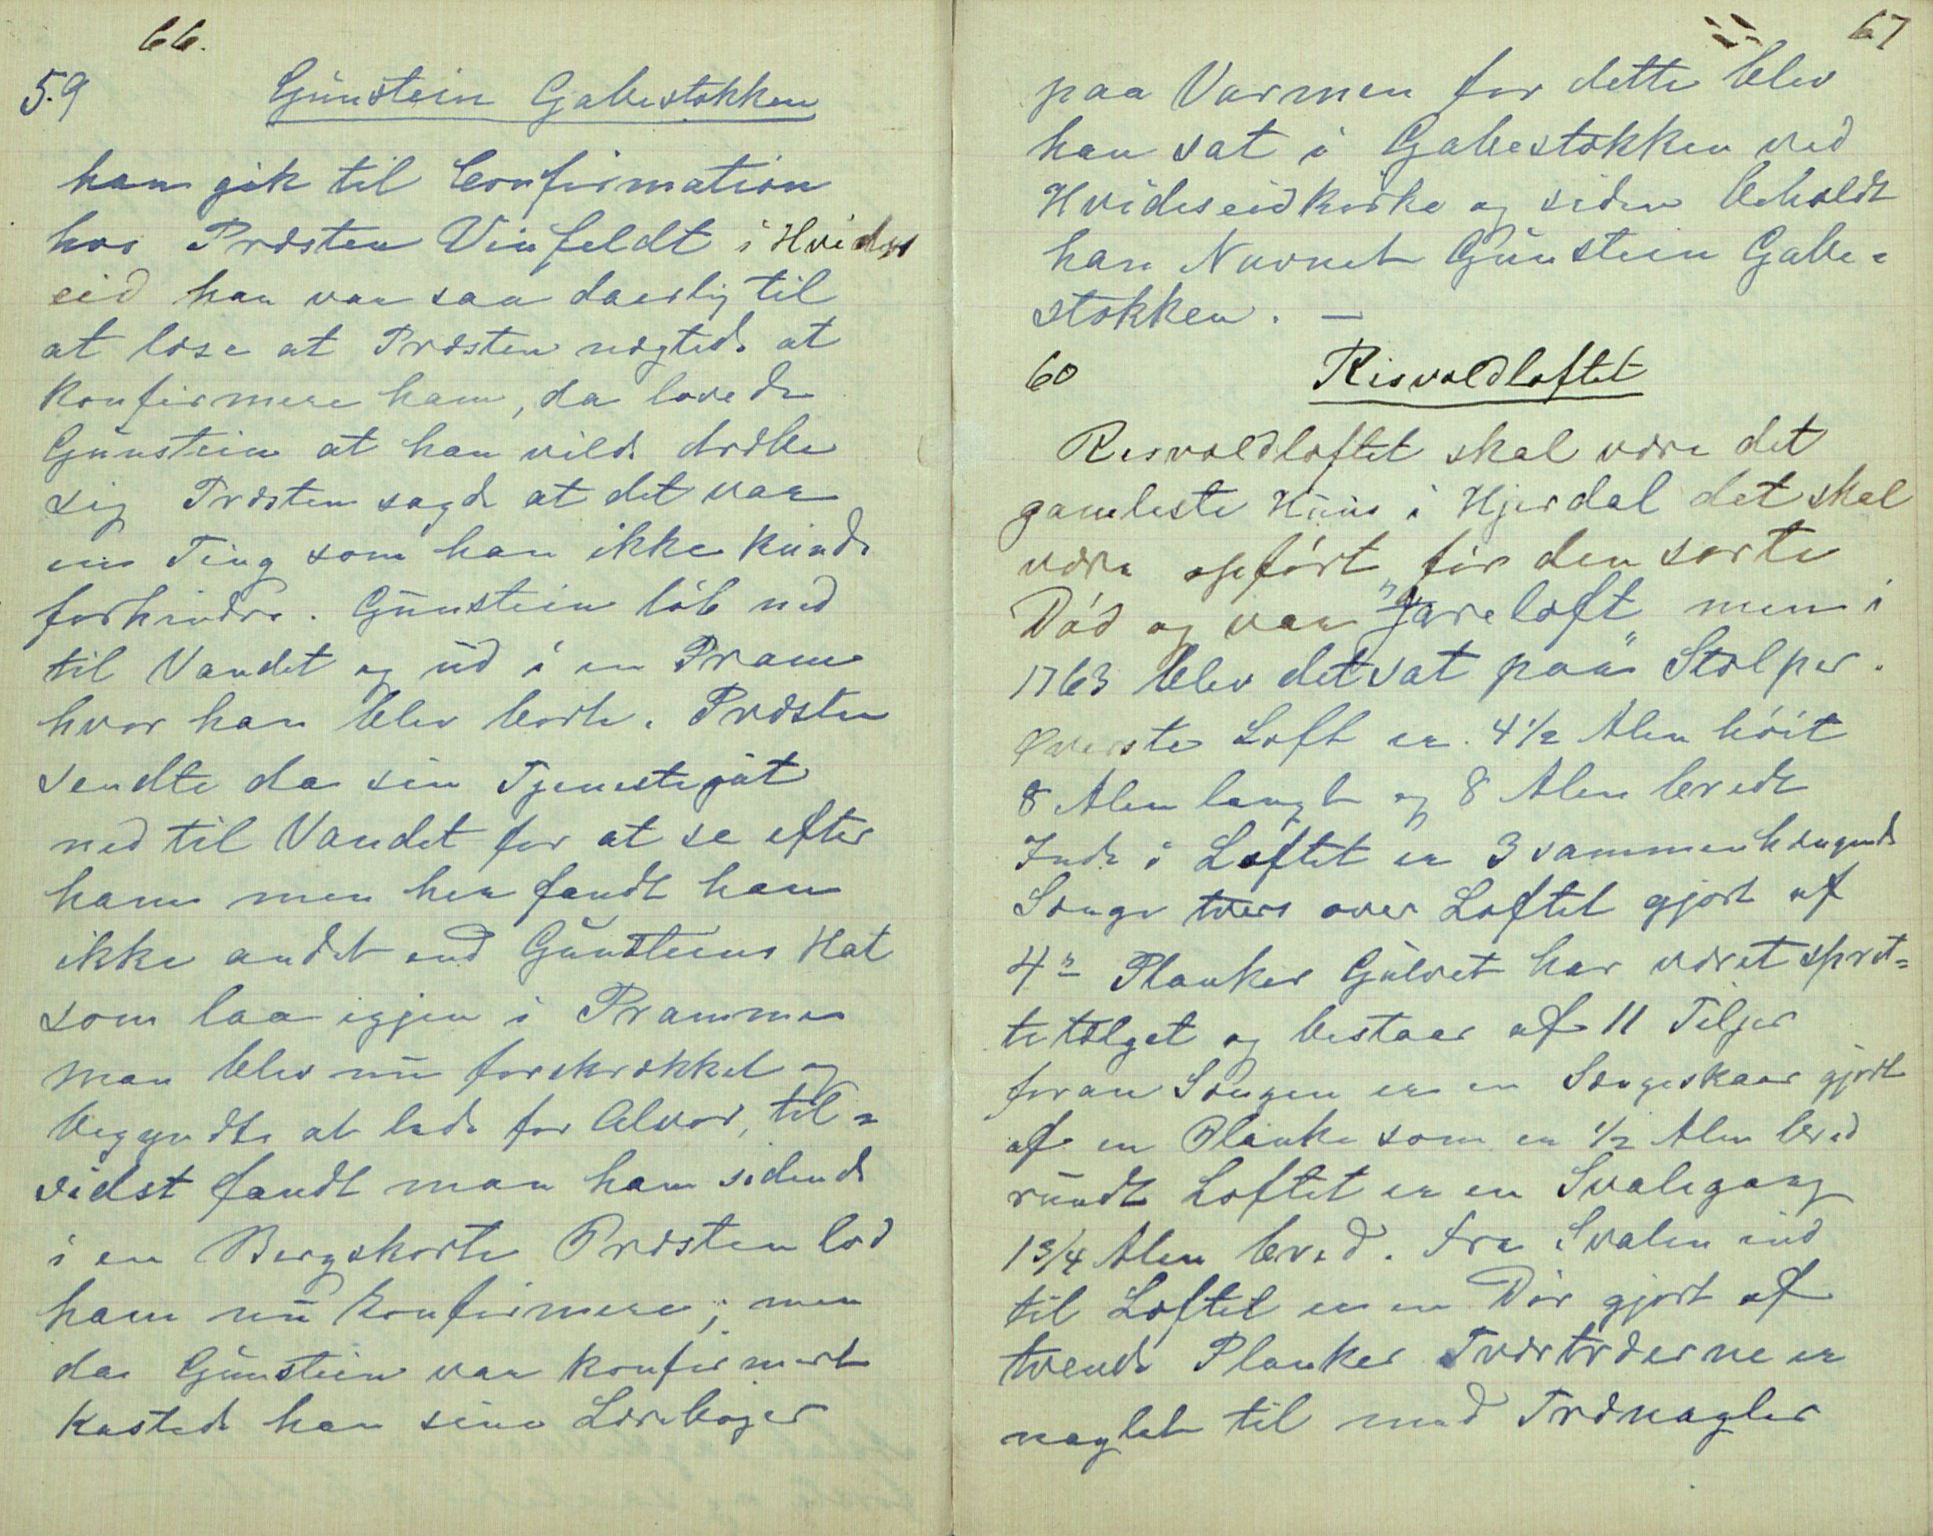 66.
59 Gunstein Gabestokken
han gik til Confirmation
hos Præsten Vinfeldt i Hvides
eid han var saa daarlig til
at læse at Præsten nægtede at
Konfirmere ham, da lovede
Gunstein at han vilde dræbe
sig Præsten sagde at det var
en Ting som han ikke kunde
forhindre. Gunstein løb ned
til Vandet og ud i en Pram
hvor han blev borte. Præsten
sendte da sin Tjenestegut
ned til Vandet for at se efter
ham men her fandt han
ikke andet end Gunsteins Hat
som laa igjen i Prammen
man blev nu forskrækket og
begyndte at lede for Alvor, til-
sidst fandt man ham sidende
i en Bergskorte Præsten lod
ham nu konfirmere; men
da Gunstein var konfirmert
kastede han sine Lærebøger
67
paa Varmen for dette blev
han sat i Gabestokken ved
Hvideseid kirke og siden beholdt
han Navnet Gunstein Gabe-
stokken. —
60 Risvoldloftet
Risvoldloftet skal være det
gamleste Huus i Hjerdal det skal
være opført før den sorte
Død og var "Jareloft men i
1763 blev det sat paa" Stolper.
Øverste Loft er 4 1/2 Alen høit
8 Alen langt og 8 Alen bredt
Inde i Loftet er 3 sammenhængende
Senge tvers over Loftet gjort af
4" Planker Gulvet har været spret-
tetelget og bestaar af 11 Tiljer
foran Sengen er en Sengeskaar gjort
af en Planke som er 1/2 Alen bred
rundt Loftet er en Svalegang
1 3/4 Alen bred. fra Svalen ind
til Loftet er en Dør gjort af
tvende Planker Tvertræerne er
naglet til med Trænagler